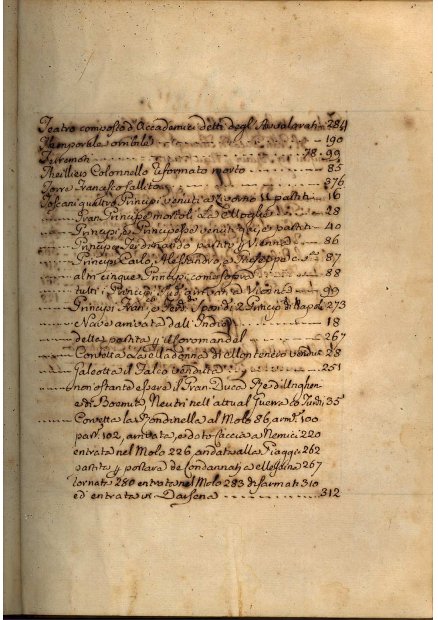 Teatro composto d'Accademici detti degl'Avvalorati 284
Temporale orribile 190
Tetremon 78. 99
Theillier Colonnello riformato morto 85
Torre Francesco fallito 376
Toscani quattro Principi venuti a Livorno 11 partiti 16
Gran Principe mortoli la Moglie 28
Principi, e Principesse venuti partiti 40
Principe Ferdinando partito p Vienna 86
Principi Carlo, Alessandro, e Giuseppe 87
altri cinque Principi come sopra 88
tutti i Principi 99
Principi Fran.co e Ferd. Sposi di 2 Princip. di Napol 273
Nave arrivata dall'Indie 18
della partita p il Coromandel 267
Corvetta la Madonna di Montenero vendut 28
Galeotta il Falco venduta 251
nonostante d'essere il Gran Duca Re di Unghe
e di Boemia Neutri nell'attual Guerra co Turchi 35
Corvetta la Rondinella al Molo 86, arm. 100
par. 102, arrivata, e dato caccia a Nemici 220
entrata nel Molo 226 andata alla Piaggia 262
partita p portare de Condannati a 267
tornata 280 entrata nel Molo 283 disarmata 310
ed entrata in Darsena 312